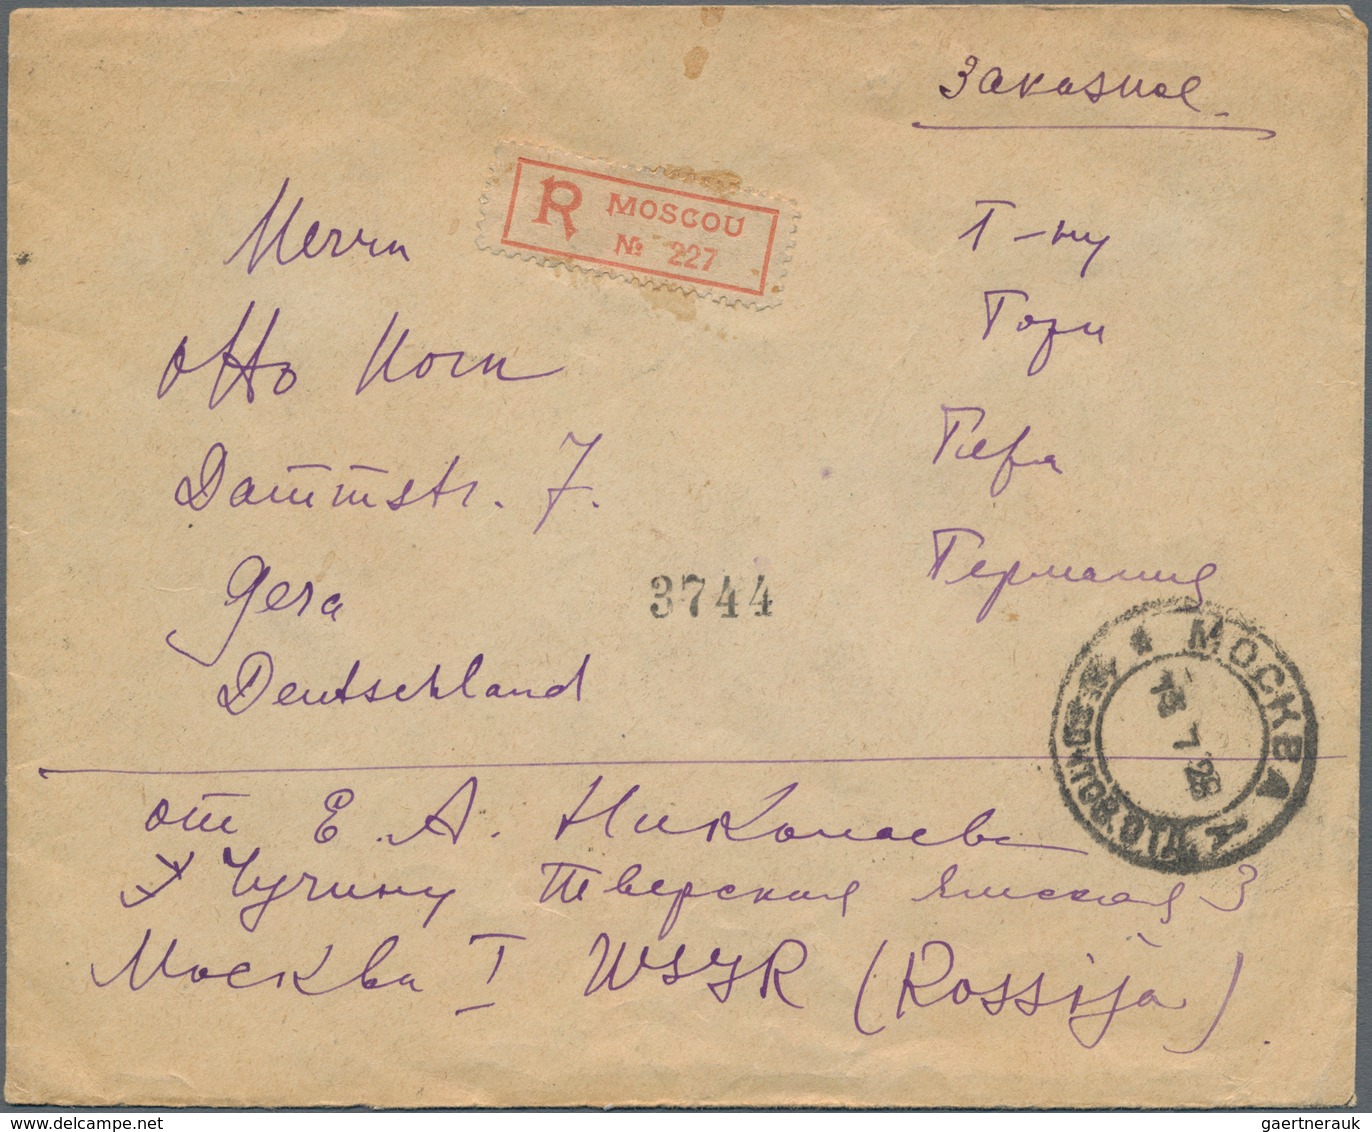 Заказное
R MOSCOU
№ 227
Herrn
Otto Horn
Dammstr. 7.
Gera
Deutschland
Г-ну
Горн
Гера
Германия
3744
МОСКВА
13 7 28
от Е. А. Николаева
Чугину Тверская Ямская 3
Москва I WSSR (Rossija).
gaertnerauk